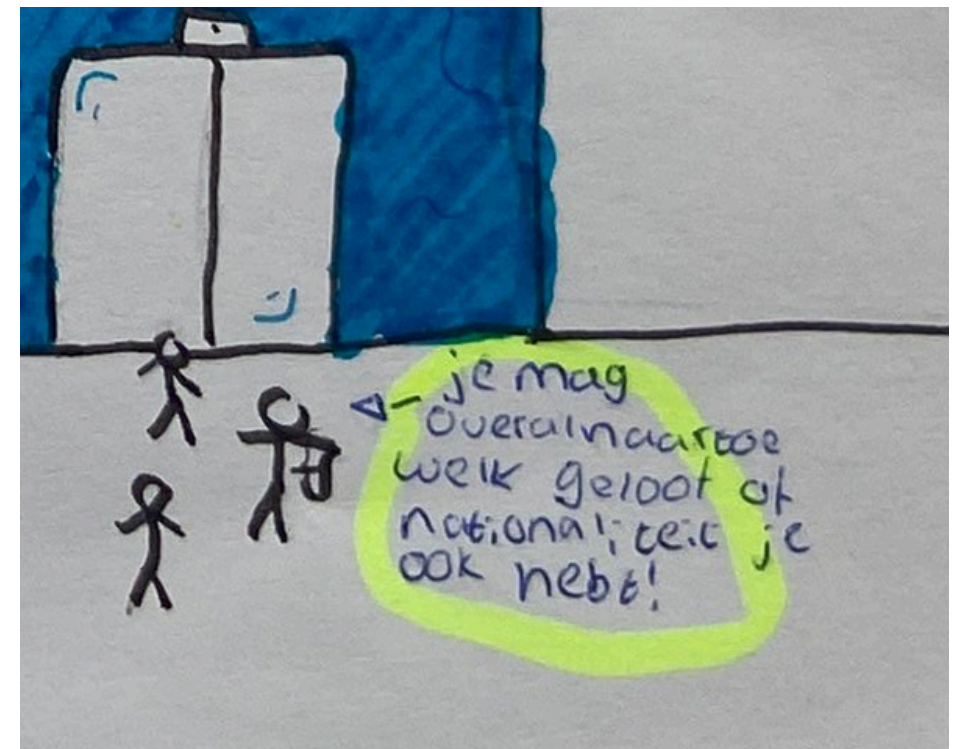 je mag
overalnaartoe
welk geloof of
nationaliteit je
ook hebt!